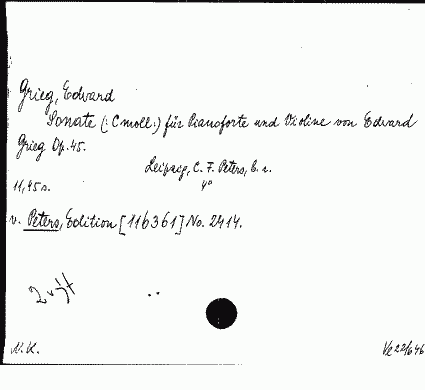 Grieg, Edvard
Sonate (: C moll :) für Pianoforte und Violine von Edvard
Grieg Op. 45.
Leipzig, C. F. Peters, b. r.
11,45 s. 4°
v. Peters, Edition [116361] No. 2414.
N. K. Ve 22/646